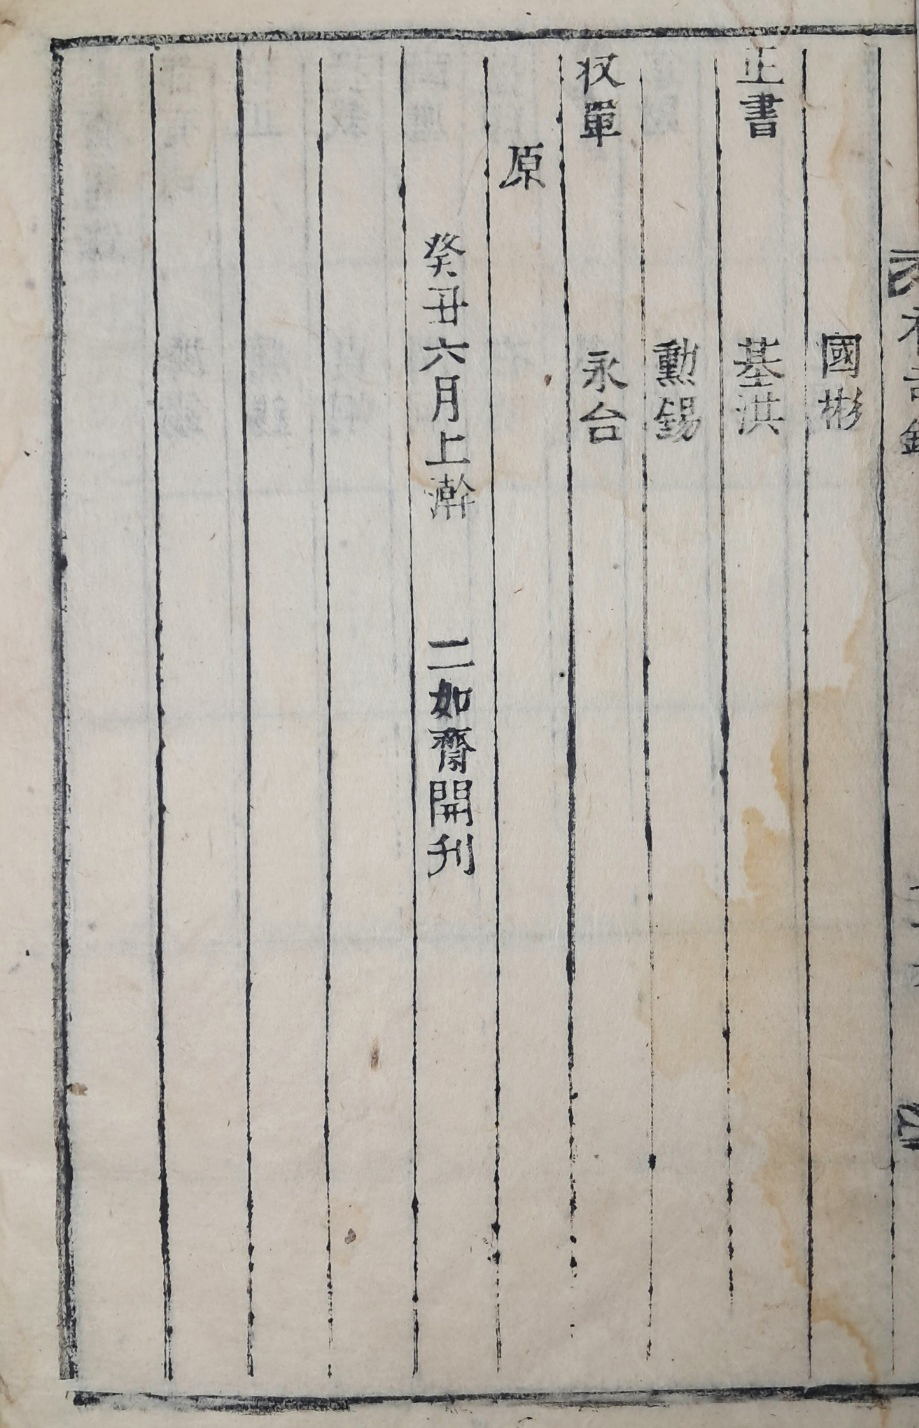 國彬
正書 基洪
勳錫
収單 永台
原
癸丑六月上澣 二如齋開刊